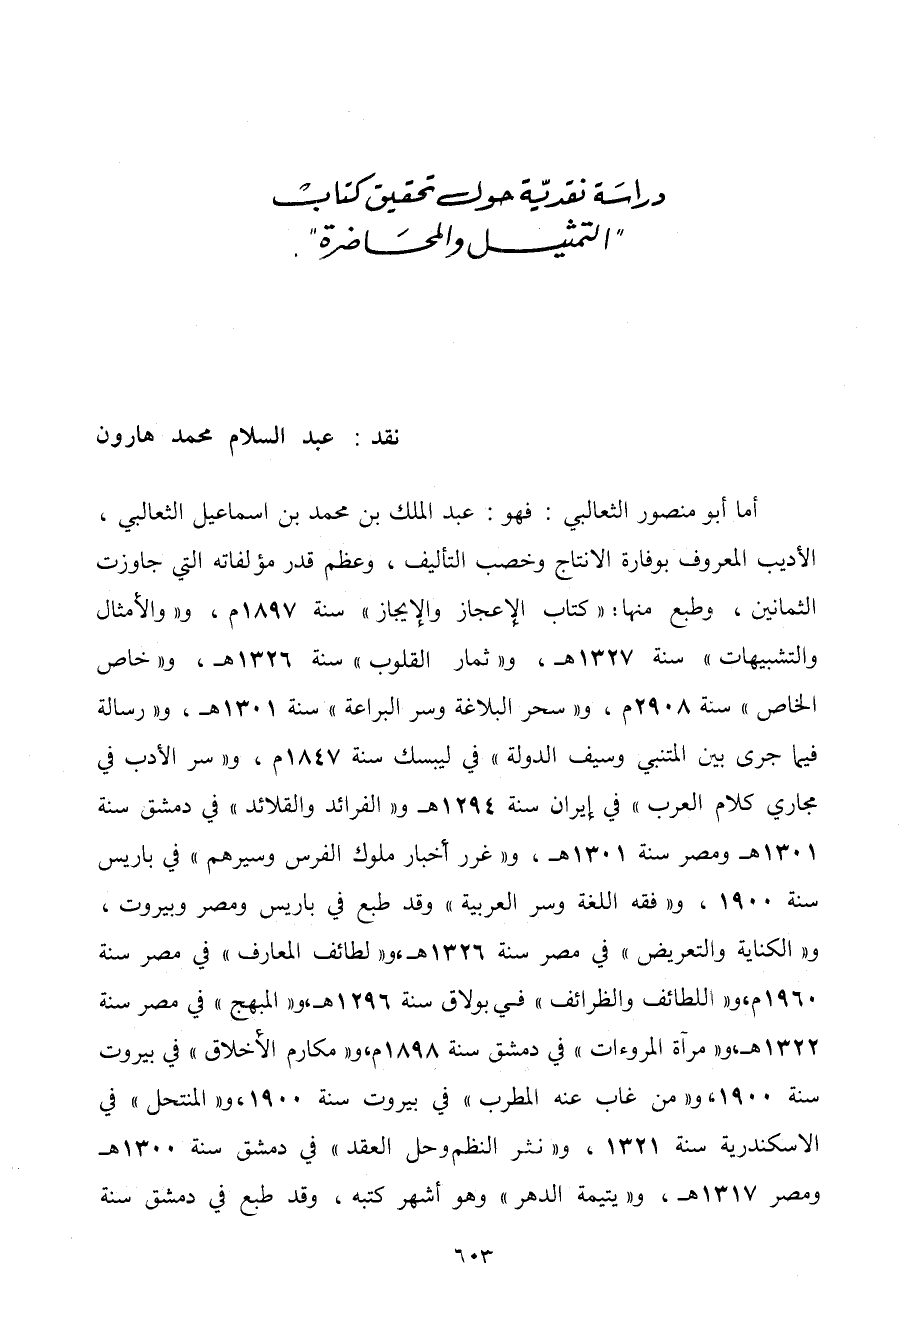 دراسة نقديّة حول تحقيق كتاب
"التمثيل والمحاضرة".
نقد : عبد السلام محمد هارون
أما أبو منصور الثعالبي : فهو : عبد الملك بن محمد بن اسماعيل الثعالبي ،
الأديب المعروف بوفارة الانتاج وخصب التأليف ، وعظم قدر مؤلفاته التي جاوزت
الثمانين ، وطبع منها : « كتاب الإعجاز والإيجاز » سنة ١٨٩٧م ، و« والأمثال
والتشبيهات » سنة ١٣٢٧هـ ، و« ثمار القلوب » سنة ١٣٢٦هـ ، و« خاص
الخاص » سنة ٢٩٠٨م ، و« سحر البلاغة وسر البراعة » سنة ١٣٠١هـ ، و« رسالة
فيما جرى بين المتنبي وسيف الدولة » في ليبسك سنة ١٨٤٧م ، و« سر الأدب في
مجاري كلام العرب » في إيران سنة ١٢٩٤هـ و« الفرائد والقلائد » في دمشق سنة
١٣٠١هـ ومصر سنة ١٣٠١هـ ، و« غرر أخبار ملوك الفرس وسيرهم » في باريس
سنة ١٩٠٠ ، و« فقه اللغة وسر العربية » وقد طبع في باريس ومصر وبيروت ،
و« الكناية والتعريض » في مصر سنة ١٣٢٦هـ،و« لطائف المعارف » في مصر سنة
١٩٦٠م،و« اللطائف والظرائف » في بولاق سنة ١٢٩٦هـ،و« المبهج » في مصر سنة
١٣٢٢هـ،و« مرآة المروءات » في دمشق سنة ١٨٩٨م،و« مكارم الأخلاق » في بيروت
سنة ١٩٠٠،و« من غاب عنه المطرب » في بيروت سنة ١٩٠٠،و« المنتحل » في
الاسكندرية سنة ١٣٢١ ، و« نثر النظم وحل العقد » في دمشق سنة ١٣٠٠هـ
ومصر ١٣١٧هـ ، و« يتيمة الدهر » وهو أشهر كتبه ، وقد طبع في دمشق سنة
٦٠٣